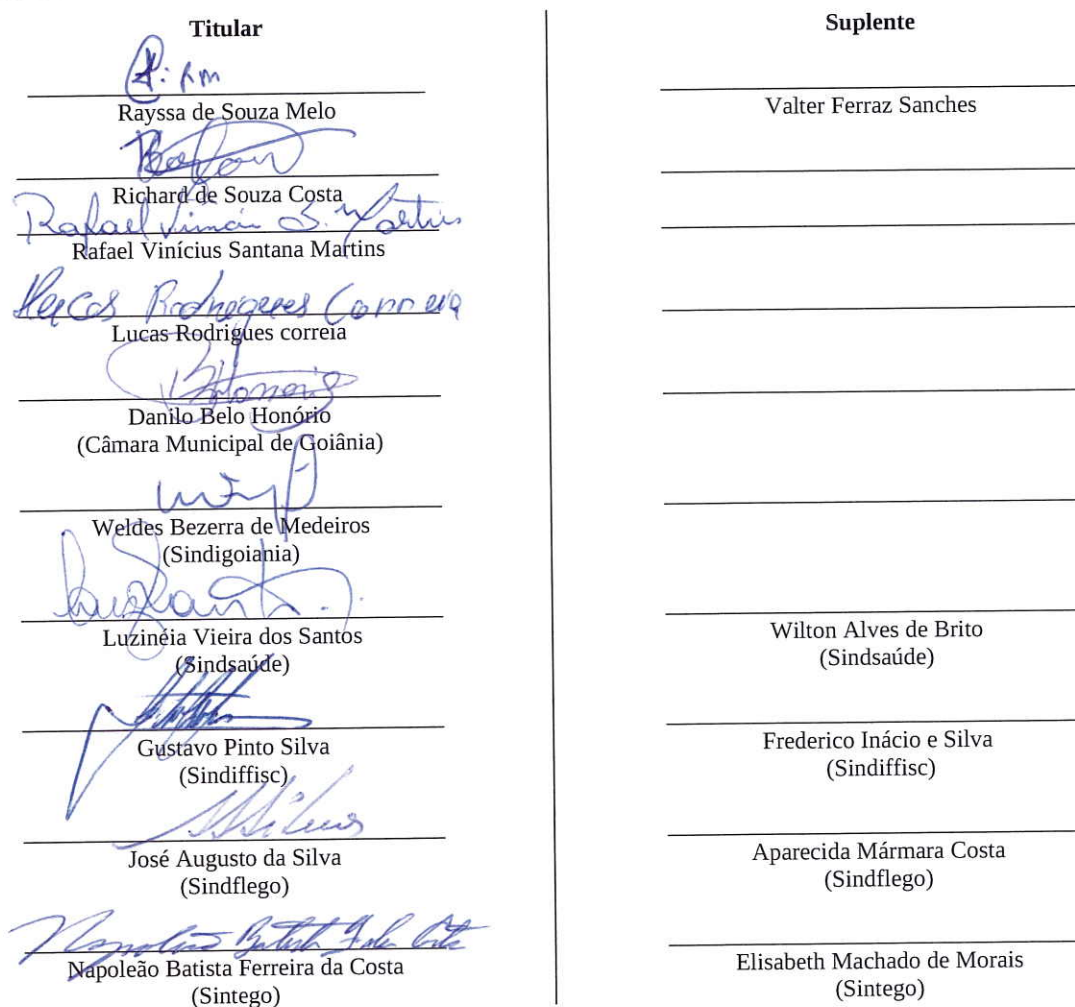 Titular
Rayssa de Souza Melo
Richard de Souza Costa
Rafael Vinícius S. Martins
Rafael Vinícius Santana Martins
Lucas Rodrigues Correia
Lucas Rodrigues correia
Danilo Belo Honório
(Câmara Municipal de Goiânia)
Weldes Bezerra de Medeiros
(Sindigoiania)
Luzinéia Vieira dos Santos
(Sindsaúde)
Gustavo Pinto Silva
(Sindiffisc)
José Augusto da Silva
(Sindflego)
Napoleão Batista Ferreira da Costa
(Sintego)
Suplente
Valter Ferraz Sanches
Wilton Alves de Brito
(Sindsaúde)
Frederico Inácio e Silva
(Sindiffisc)
Aparecida Mármara Costa
(Sindflego)
Elisabeth Machado de Morais
(Sintego)